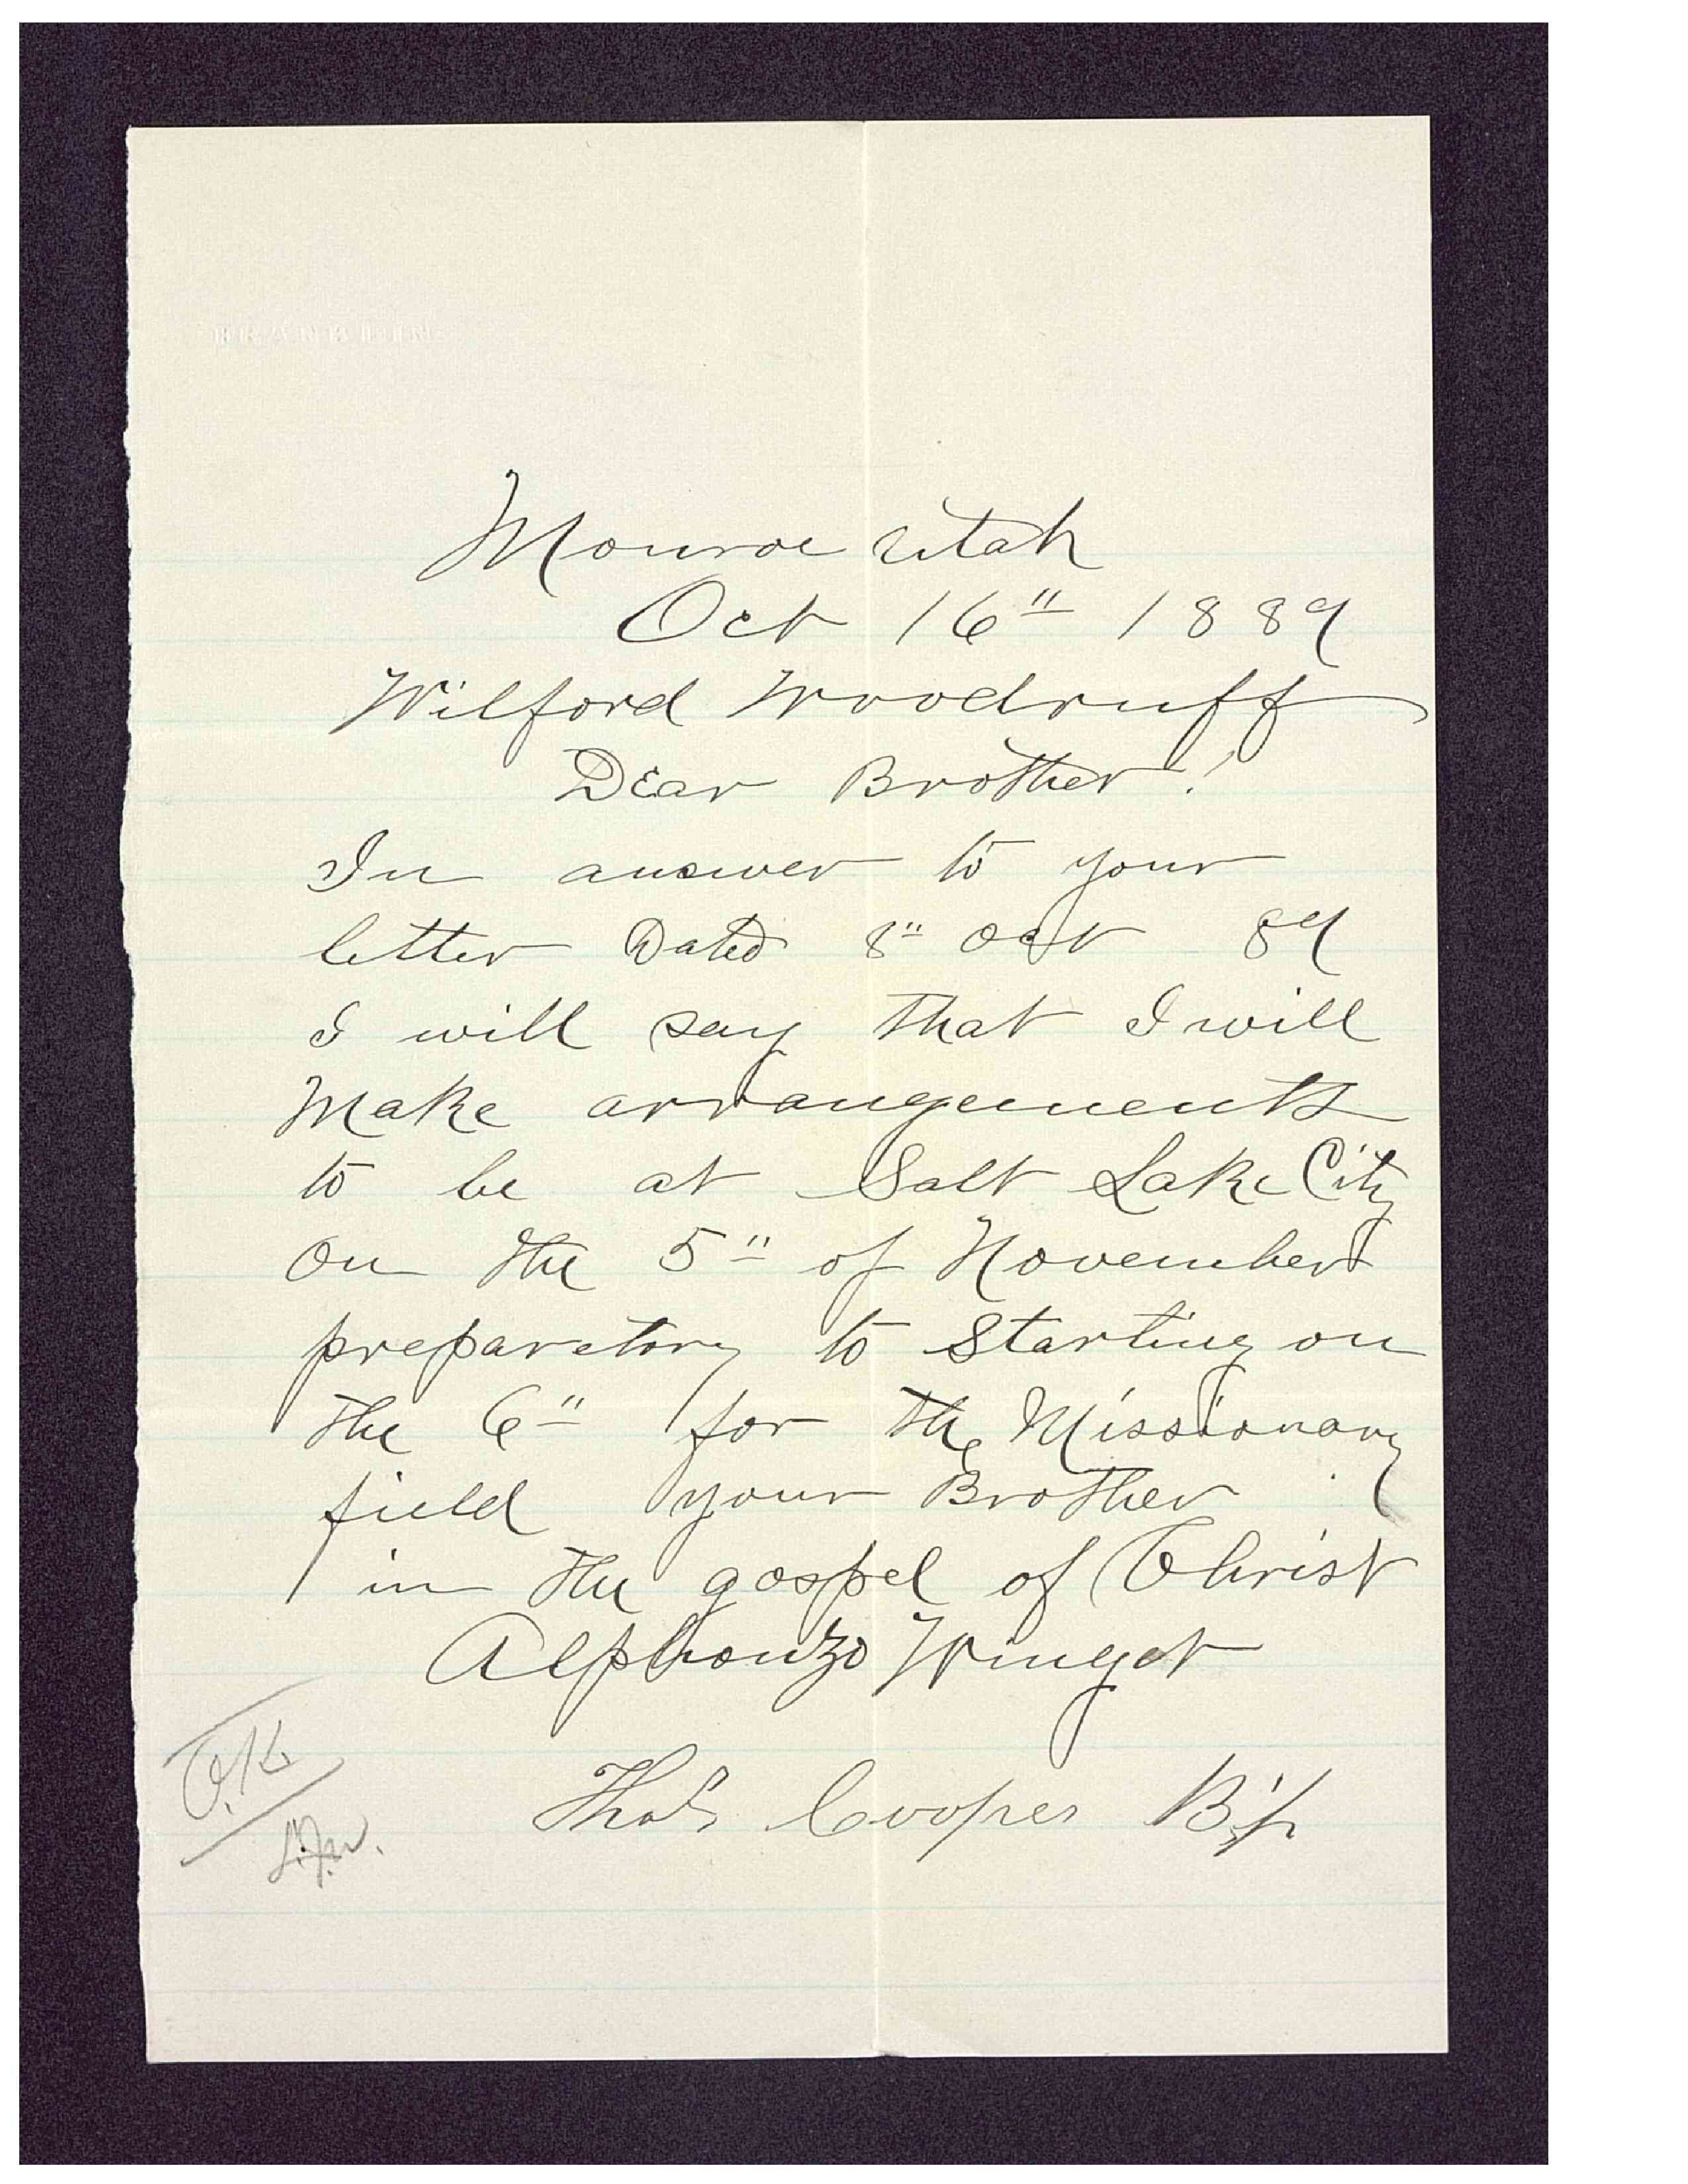 FRANKLIN
Monroe Utah
Oct 16" 1889
Wilford Woodruff
Dear Brother!
In answer to your
letter Dated 8" Oct 89
I will say that I will
Make arrangements
to be at Salt Lake City
On the 5" of November
preparetory to Starting on
the 6" for the Missionary
field your Brother
in the gospel of Christ
Alphonzo Winget
Thos Cooper B'p
O.K.
L.J.N.